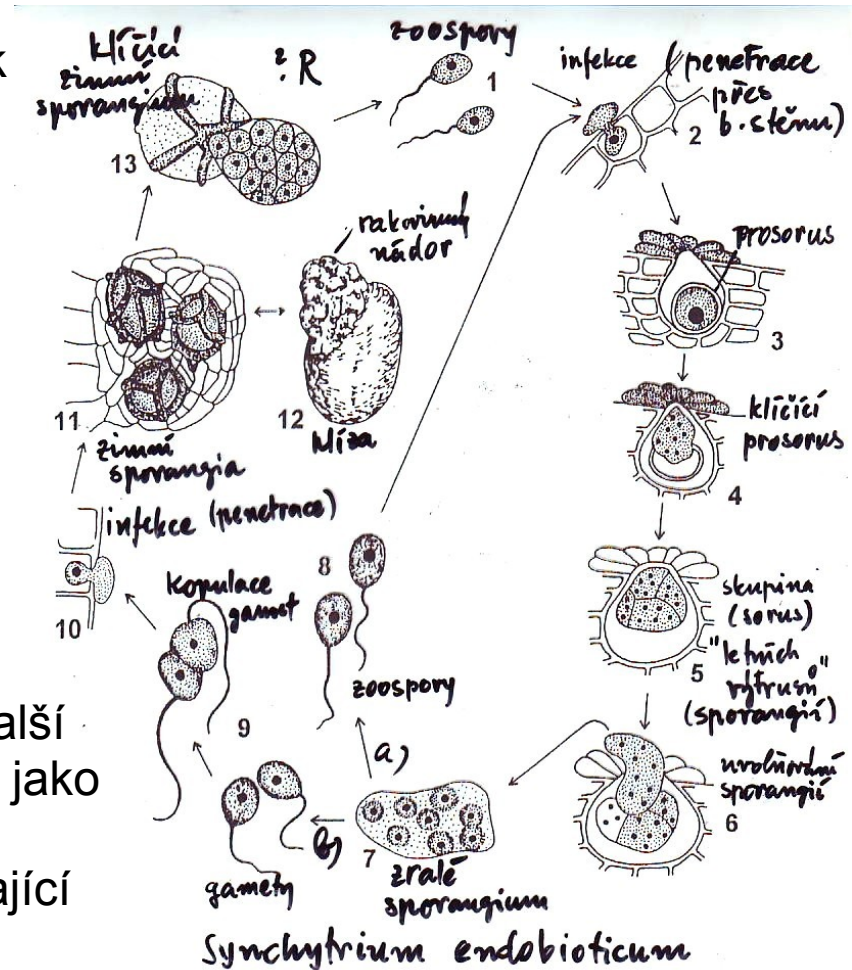 k
klíčící
zimní
sporangium
? R
zoospory
1
infekce (penetrace
přes
b. stěnu)
2
13
rakovinný
nádor
prosorus
3
11
12
hlíza
zimní
sporangia
klíčící
prosorus
4
infekce (penetrace)
10
kopulace
gamet
8
skupina
(sorus)
"letních
výtrusů"
(sporangií)
5
zoospory
9
a)
další
jako
uvolňování
sporangií
6
b)
7
gamety
zralé
sporangium
ající
Synchytrium endobioticum